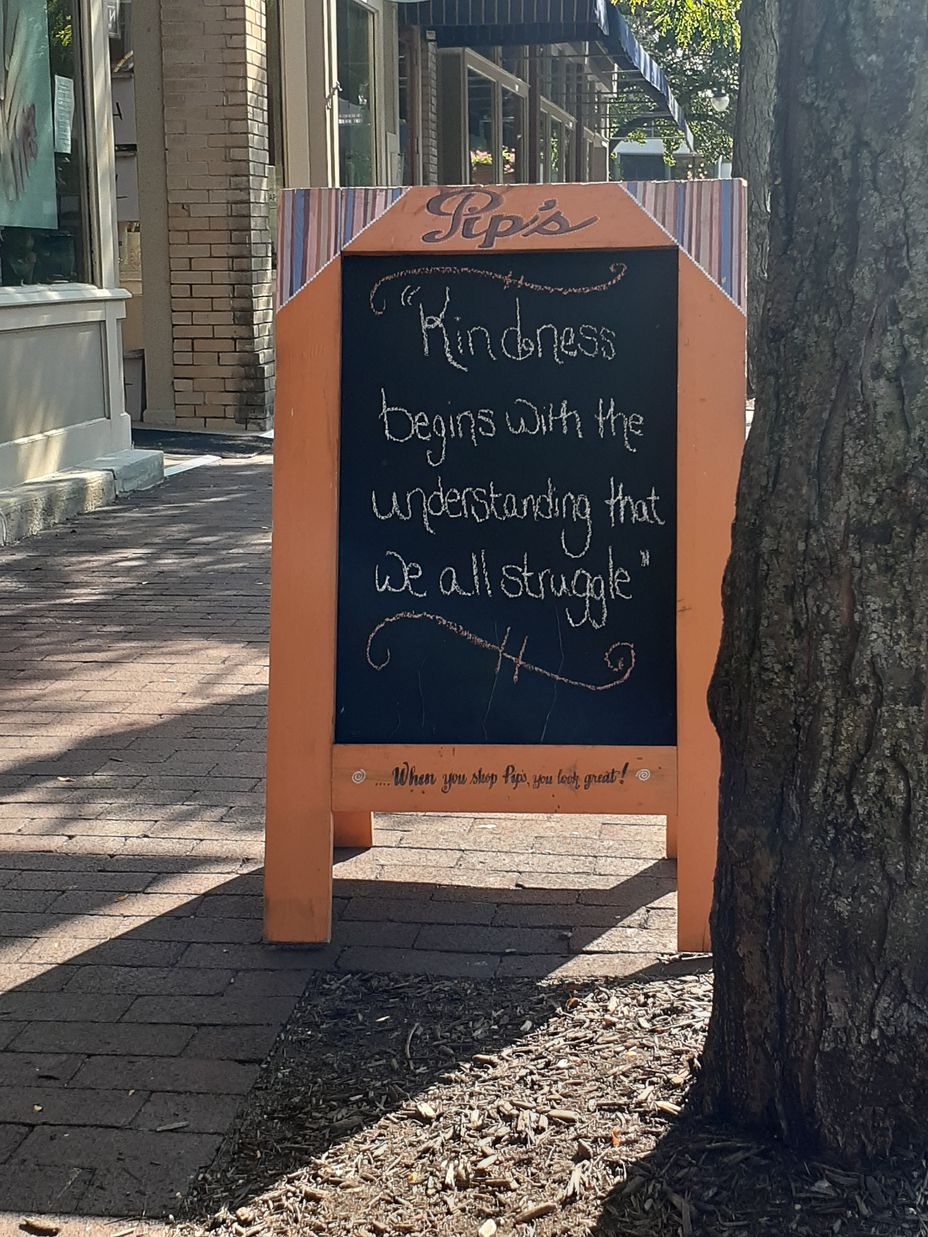 Pip's
"Kindness
begins with the
understanding that
we all struggle"
....When you shop Pip's, you look great!